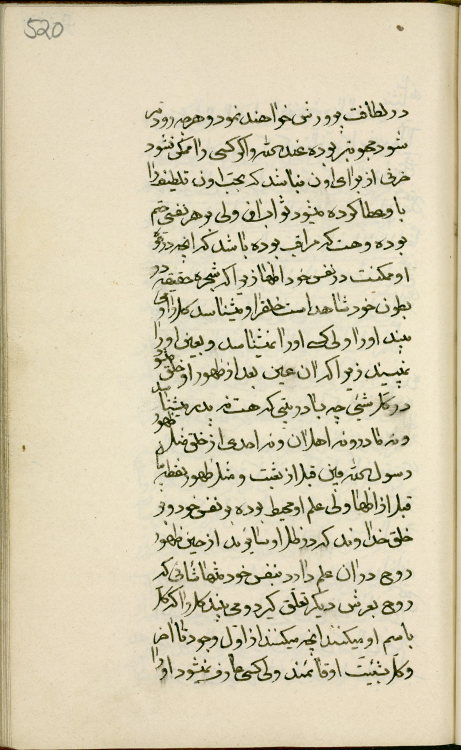 520
در لطافت پرورش خواهند نمود و هرچه زودتر
شود محبوبتر بوده عند الله واگر کسی را ممکن نشود
حرفی از برای اون نباشد که بجهت اون تلطیفرا
باو عطا کرده میشود ثواب اون ولی بر هر نفسی حتم
بوده وهست که مراقب بوده باشد که آنچه در قوه
او ممکنست در نفس خود اظهار زیرا که شجره حقیقه در
بطون خود شاهد است خلق را و میشناسد کل را و می
بیند او را ولی کسی او را نمیشناسد و بعین او را
نمیبیند زیرا که آن عین بعد از ظهور او خلق میشود
در کل شیئ چه بسا در بنی که هست نه پدر میشناسد
و نه مادر و نه اهل آن و نه احدی از خلق مثل ظهور
رسول الله قبل از بعثت و مثل ظهور نقطه
قبل از اظهار ولی علم او محیط بوده بر نفس خود و بر
خلق خداوند که در ظل او سایرند از حین ظهور
روح در آن علم دارد بنفس خود منتها شأنی که
روح بعرش دیگر تعلق گیرد و می بیند کل را که کل
باسم او میکنند آنچه میکنند از اول وجود تا آخر
و کل بمشیت او قائمند ولی کسی عارف نمیشود او را